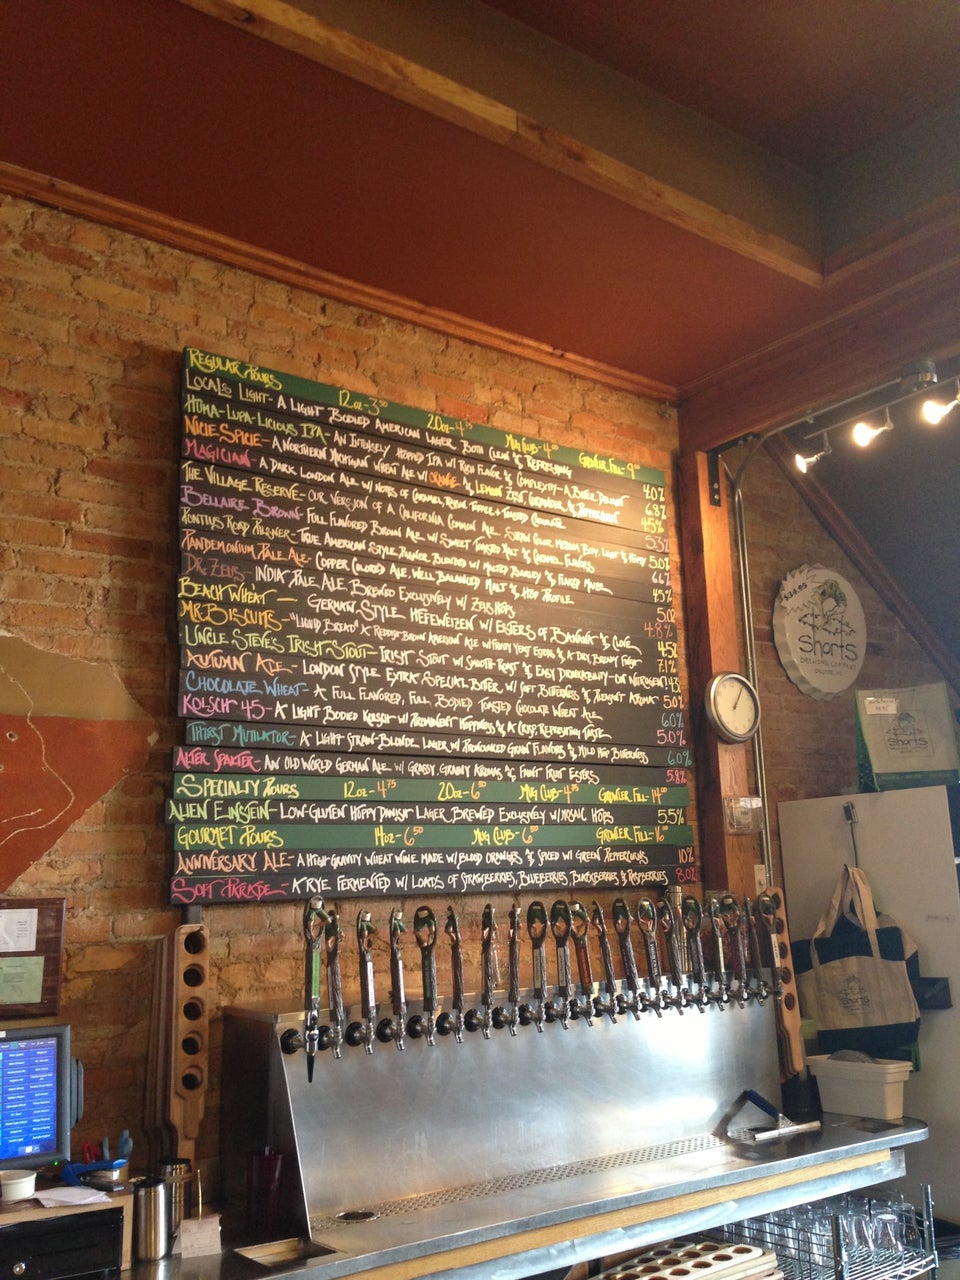 REGULAR POURS 12oz-3.50 20oz-4.75 MUG CLUB-4.00 GROWLER FILL-9.00
LOCAL'S LIGHT- A LIGHT BODIED AMERICAN LAGER. BOTH CLEAN & REFRESHING 4.0%
HUMA-LUPA-LICIOUS IPA- AN INTENSELY HOPPED IPA W/ RICH FLAVOR & COMPLEXITY- A BITTER DELIGHT 6.8%
NICIE SPICIE- A NORTHERN MICHIGAN WHEAT ALE W/ ORANGE & LEMON ZEST, CORIANDER, & PEPPERCORN 4.5%
MAGICIAN- A DARK LONDON ALE W/ NOTES OF CARAMEL, RAISIN, TOFFEE + TOASTED CHOCOLATE 5.3%
THE VILLAGE RESERVE- OUR VERSION OF A CALIFORNIA COMMON ALE. STRAW COLOR, MEDIUM BODY, LIGHT & HOPPY 5.0%
BELLAIRE BROWN- FULL FLAVORED BROWN ALE W/ SWEET TOASTED MALT & CARAMEL FLAVORS 6.6%
PONTIUS ROAD PILSNER- TRUE AMERICAN STYLE PILSNER BLENDED W/ MALTED BARLEY & FLAKED MAIZE 4.5%
PANDEMONIUM PALE ALE- COPPER COLORED ALE, WELL BALANCED MALT & HOP PROFILE 5.0%
DR. ZEUS- INDIA PALE ALE, BREWED EXCLUSIVELY W/ ZEUS HOPS
BEACH WHEAT- GERMAN STYLE HEFEWEIZEN W/ ESTERS OF BANANA & CLOVE 4.8%
MR. BISCUITS- "LIQUID BREAD" A REDDISH-BROWN AMERICAN ALE W/ FRUITY YEAST ESTERS & A DRY, BREADY FINISH 4.5%
UNCLE STEVE'S IRISH STOUT- IRISH STOUT W/ SMOOTH ROAST & EASY DRINKABILITY- ON NITROGEN! 7.1%
AUTUMN ALE- LONDON STYLE EXTRA SPECIAL BITTER W/ SOFT BITTERNESS & PLEASANT AROMA 4.3
CHOCOLATE WHEAT- A FULL FLAVORED, FULL BODIED TOASTED CHOCOLATE WHEAT ALE 5.0%
KOLSCH 45- A LIGHT BODIED KOLSCH W/ PROMINENT HOPPINESS & A CRISP, REFRESHING TASTE 6.0%
5.0%
THIRST MUTILATOR- A LIGHT STRAW-BLONDE LAGER W/ PRONOUNCED GRAIN FLAVORS & MILD HOP BITTERNESS 6.0%
ALTER SPALTER- AN OLD WORLD GERMAN ALE W/ GRASSY, GRAINY AROMAS & FAINT FRUIT ESTERS 5.8%
SPECIALTY POURS 12oz-4.75 20oz-6.50 MUG CLUB-4.75 GROWLER FILL-14.00
ALIEN EINSTEIN- LOW-GLUTEN HOPPY DANISH LAGER BREWED EXCLUSIVELY W/ MOSAIC HOPS 5.5%
GOURMET POURS 14oz-6.50 MUG CLUB-6.50 GROWLER FILL-16.00
ANNIVERSARY ALE- A HIGH-GRAVITY WHEAT WINE MADE W/ BLOOD ORANGES & SPICED W/ GREEN PEPPERCORNS 10%
SOFT PARADE- A RYE FERMENTED W/ LOADS OF STRAWBERRIES, BLUEBERRIES, BLACKBERRIES & RASPBERRIES 8.0%
$34.95
Shorts
BREWING COMPANY
Shorts
Shorts